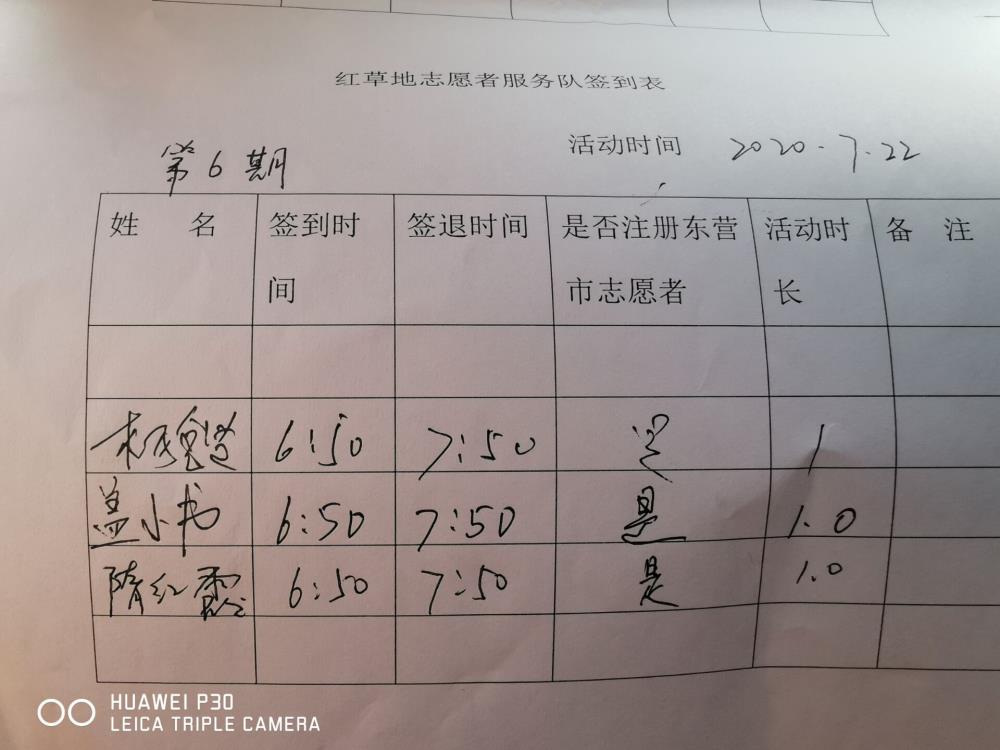 红草地志愿者服务队签到表
第6期 活动时间 2020.7.22
姓 名 签到时间 签退时间 是否注册东营市志愿者 活动时长 备 注
6:50 7:50 是 1
盖小书 6:50 7:50 是 1.0
隋红霞 6:50 7:50 是 1.0
HUAWEI P30
LEICA TRIPLE CAMERA